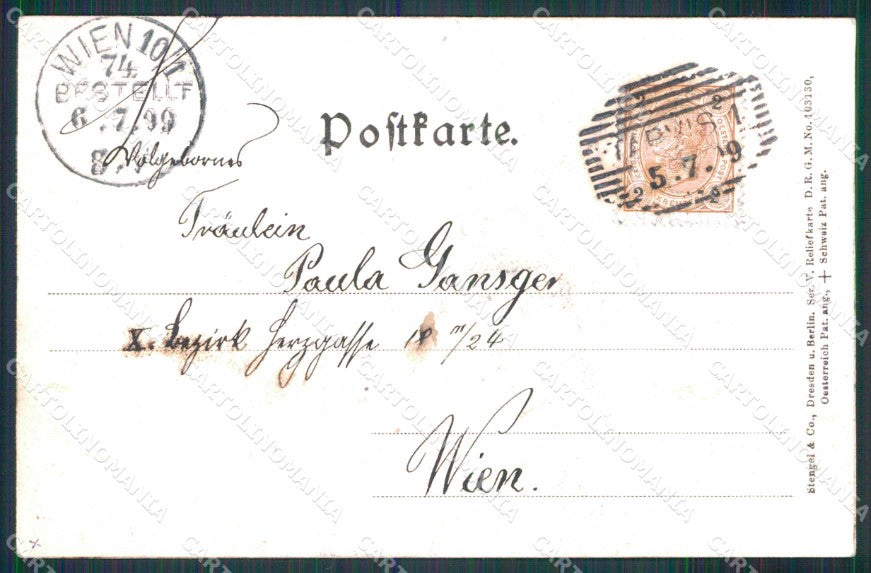 WIEN 10/1
74
BESTELLT
6.7.99
8.
Postkarte.
TARVIS 1
5.7.9
Wolgebornes
Fräulein
Paula Gansger
X. Bezirk Herzgasse 18 III/24
Wien.
Stengel & Co., Dresden u. Berlin. Ser. V. Reliefkarte D. R. G. M. No. 103130,
Oesterreich Pat. ang., + Schweiz Pat. ang.
CARTOLINOMANIA